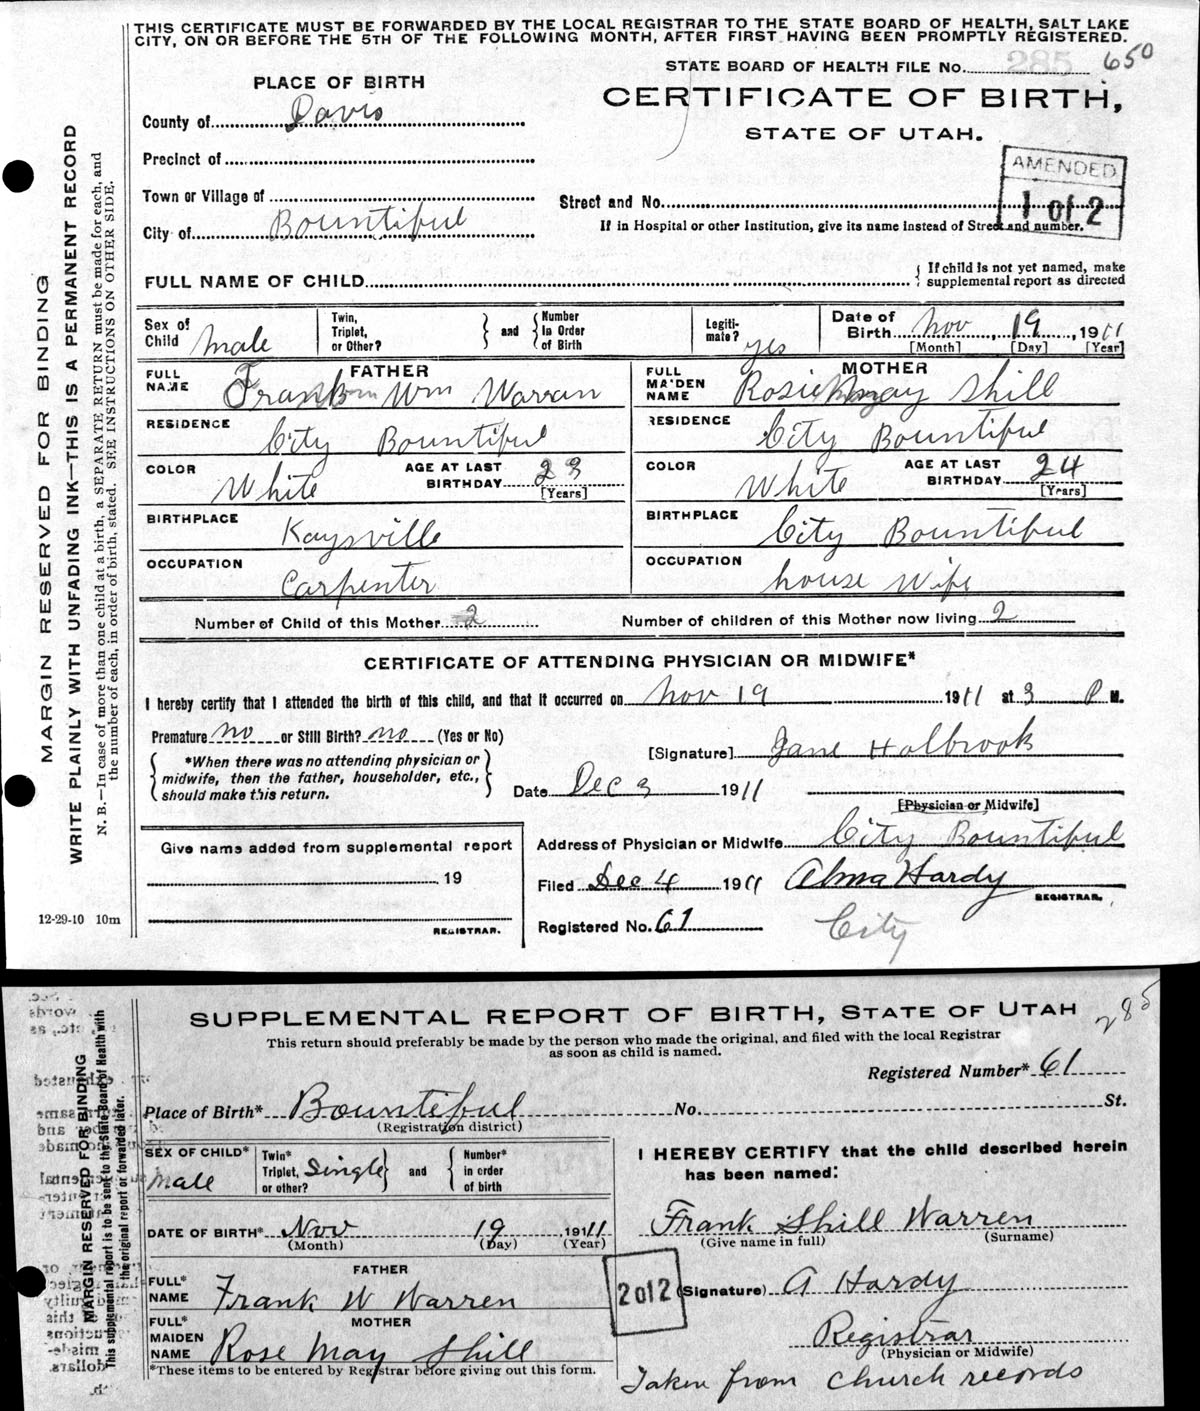 THIS CERTIFICATE MUST BE FORWARDED BY THE LOCAL REGISTRAR TO THE STATE BOARD OF HEALTH, SALT LAKE
CITY, ON OR BEFORE THE 5TH OF THE FOLLOWING MONTH, AFTER FIRST HAVING BEEN PROMPTLY REGISTERED.
STATE BOARD OF HEALTH FILE No. 285 650
PLACE OF BIRTH
CERTIFICATE OF BIRTH,
STATE OF UTAH.
County of Davis
Precinct of
AMENDED
1 of 2
Town or Village of
Street and No.
City of Bountiful
If in Hospital or other Institution, give its name instead of Street and number.
FULL NAME OF CHILD
If child is not yet named, make
supplemental report as directed
Sex of Child male
Twin, Triplet, or Other?
and
Number in Order of Birth
Legiti-mate? yes
Date of Birth Nov 19, 1911
[Month] [Day] [Year]
FATHER
FULL NAME Frank Wm Warran
MOTHER
FULL MAIDEN NAME Rosie May Shill
RESIDENCE City Bountiful
RESIDENCE City Bountiful
COLOR White
AGE AT LAST BIRTHDAY 23
[Years]
COLOR White
AGE AT LAST BIRTHDAY 24
[Years]
BIRTHPLACE Kaysville
BIRTHPLACE City Bountiful
OCCUPATION Carpenter
OCCUPATION house Wife
Number of Child of this Mother 2
Number of children of this Mother now living 2
CERTIFICATE OF ATTENDING PHYSICIAN OR MIDWIFE*
I hereby certify that I attended the birth of this child, and that it occurred on Nov 19 1911 at 3 P M.
Premature no or Still Birth? no (Yes or No)
[Signature] Jane Holbrook
*When there was no attending physician or
midwife, then the father, householder, etc.,
should make this return.
Date Dec 3 1911
[Physician or Midwife]
Give name added from supplemental report
Address of Physician or Midwife City Bountiful
19
Filed Dec 4 1911 Alma Hardy
REGISTRAR.
REGISTRAR.
Registered No. 61
City
12-29-10 10m
MARGIN RESERVED FOR BINDING
WRITE PLAINLY WITH UNFADING INK—THIS IS A PERMANENT RECORD
N. B.—In case of more than one child at a birth, a SEPARATE RETURN must be made for each, and
the number of each, in order of birth, stated. SEE INSTRUCTIONS ON OTHER SIDE.
SUPPLEMENTAL REPORT OF BIRTH, STATE OF UTAH
285
This return should preferably be made by the person who made the original, and filed with the local Registrar
as soon as child is named.
Registered Number* 61
Place of Birth* Bountiful No. St.
(Registration district)
SEX OF CHILD* Male
Twin* Triplet, or other? Single
and
Number* in order of birth
I HEREBY CERTIFY that the child described herein
has been named:
DATE OF BIRTH* Nov 19 1911
(Month) (Day) (Year)
Frank Shill Warren
(Give name in full) (Surname)
FATHER
FULL* NAME Frank W Warren
2012
(Signature) A Hardy
MOTHER
FULL* MAIDEN NAME Rose May Shill
Registrar
(Physician or Midwife)
*These items to be entered by Registrar before giving out this form.
Taken from Church records
MARGIN RESERVED FOR BINDING
This supplemental report is to be sent to the State Board of Health with
the original report or forwarded later.